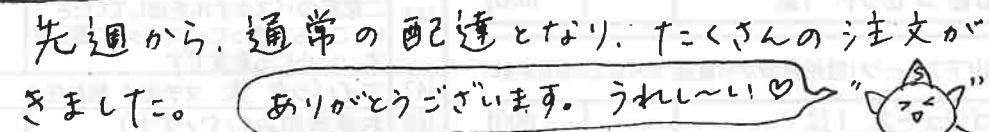 先週から、通常の配達となり、たくさんの注文が
きました。 ありがとうございます。うれし～い♡